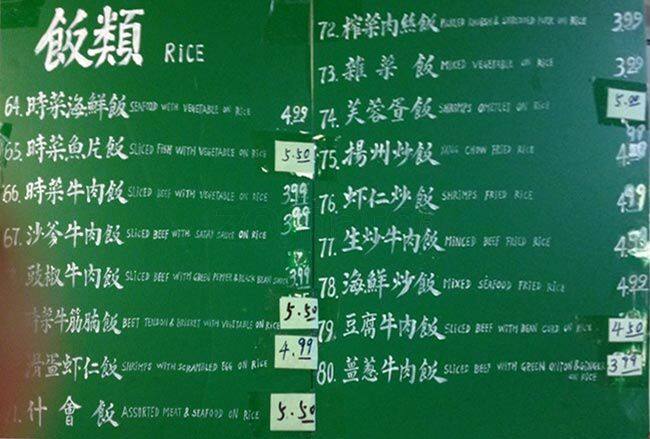 飯類 RICE
64. 時菜海鮮飯 SEAFOOD WITH VEGETABLE ON RICE 4.99
65. 時菜魚片飯 SLICED FISH WITH VEGETABLE ON RICE 5.50
66. 時菜牛肉飯 SLICED BEEF WITH VEGETABLE ON RICE 3.99
67. 沙爹牛肉飯 SLICED BEEF WITH SATAY SAUCE ON RICE 3.99
豉椒牛肉飯 SLICED BEEF WITH GREEN PEPPER & BLACK BEAN SAUCE 3.99
時菜牛筋腩飯 BEEF TENDON & BRISKET WITH VEGETABLE ON RICE 5.50
滑蛋虾仁飯 SHRIMPS WITH SCRAMBLED EGG ON RICE 4.99
什會飯 ASSORTED MEAT & SEAFOOD ON RICE 5.50
72. 榨菜肉丝飯 & SHREDDED PORK ON RICE 3.99
73. 雜菜飯 MIXED VEGETABLE ON RICE 3.99
74. 芙蓉蛋飯 SHRIMPS OMELET ON RICE 5.00
75. 揚州炒飯 YANG CHOW FRIED RICE
76. 虾仁炒飯 SHRIMPS FRIED RICE 4.99
77. 生炒牛肉飯 MINCED BEEF FRIED RICE
78. 海鮮炒飯 MIXED SEAFOOD FRIED RICE 4.99
79. 豆腐牛肉飯 SLICED BEEF WITH BEAN CURD ON RICE 4.50
80. 薑蔥牛肉飯 SLICED BEEF WITH GREEN ONION & GINGER ON RICE 3.99